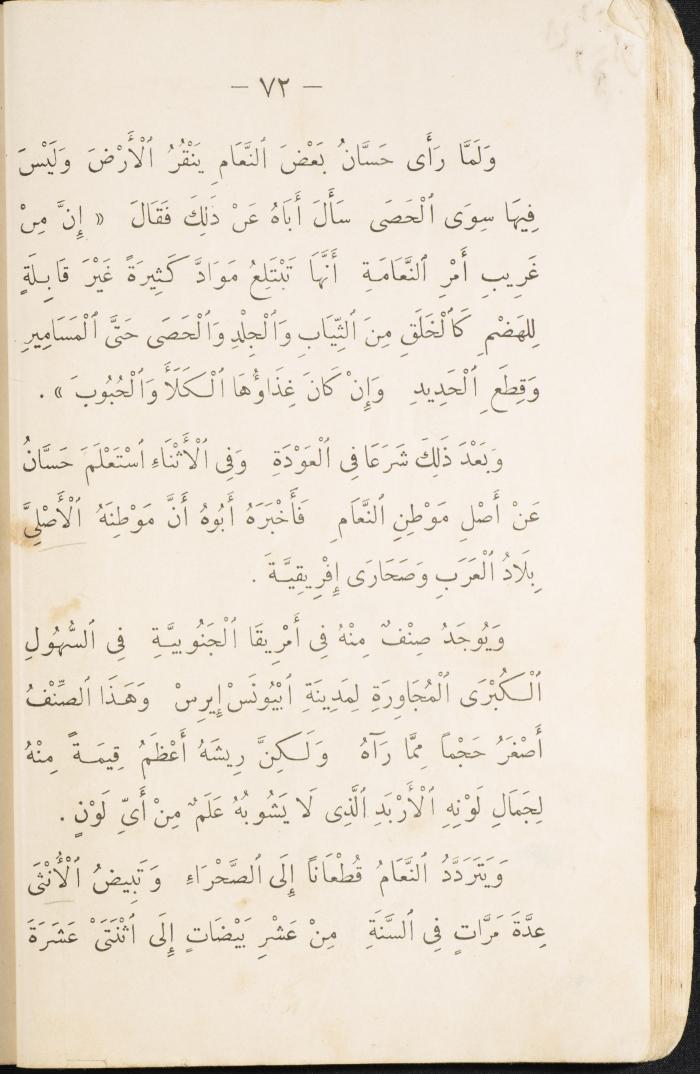 — ٧٢ —
وَلَمَّا رَأَى حَسَّانُ بَعْضَ ٱلنَّعَامِ يَنْقُرُ ٱلْأَرْضَ وَلَيْسَ
فِيهَا سِوَى ٱلْحَصَى سَأَلَ أَبَاهُ عَنْ ذَلِكَ فَقَالَ « إِنَّ مِنْ
غَرِيبِ أَمْرِ ٱلنَّعَامَةِ أَنَّهَا تَبْتَلِعُ مَوَادَّ كَثِيرَةً غَيْرَ قَابِلَةٍ
لِلهَضْمِ كَٱلْخَلَقِ مِنَ ٱلثِّيَابِ وَٱلْجِلْدِ وَٱلْحَصَى حَتَّى ٱلْمَسَامِيرِ
وَقِطَعِ ٱلْحَدِيدِ وَإِنْ كَانَ غِذَاؤُهَا ٱلْكَلَأَ وَٱلْحُبُوبَ » .
وَبَعْدَ ذَلِكَ شَرَعَا فِى ٱلْعَوْدَةِ وَفِى ٱلْأَثْنَاءِ ٱسْتَعْلَمَ حَسَّانُ
عَنْ أَصْلِ مَوْطِنِ ٱلنَّعَامِ فَأَخْبَرَهُ أَبُوهُ أَنَّ مَوْطِنَهُ ٱلْأَصْلِىَّ
بِلَادُ ٱلْعَرَبِ وَصَحَارَى إِفْرِيقِيَّةَ .
وَيُوجَدُ صِنْفٌ مِنْهُ فِى أَمْرِيقَا ٱلْجَنُوبِيَّةِ فِى ٱلسُّهُولِ
ٱلْكُبْرَى ٱلْمُجَاوِرَةِ لِمَدِينَةِ ٱبْيُونَسْ إِيرِسْ وَهَذَا ٱلصِّنْفُ
أَصْغَرُ حَجْمًا مِمَّا رَآهُ وَلَكِنَّ رِيشَهُ أَعْظَمُ قِيمَةً مِنْهُ
لِجَمَالِ لَوْنِهِ ٱلْأَرْبَدِ ٱلَّذِى لَا يَشُوبُهُ عَلَمٌ مِنْ أَىِّ لَوْنٍ .
وَيَتَرَدَّدُ ٱلنَّعَامُ قُطْعَانًا إِلَى ٱلصَّحْرَاءِ وَتَبِيضُ ٱلْأُنْثَى
عِدَّةَ مَرَّاتٍ فِى ٱلسَّنَةِ مِنْ عَشْرِ بَيْضَاتٍ إِلَى ٱثْنَتَىْ عَشَرَةَ